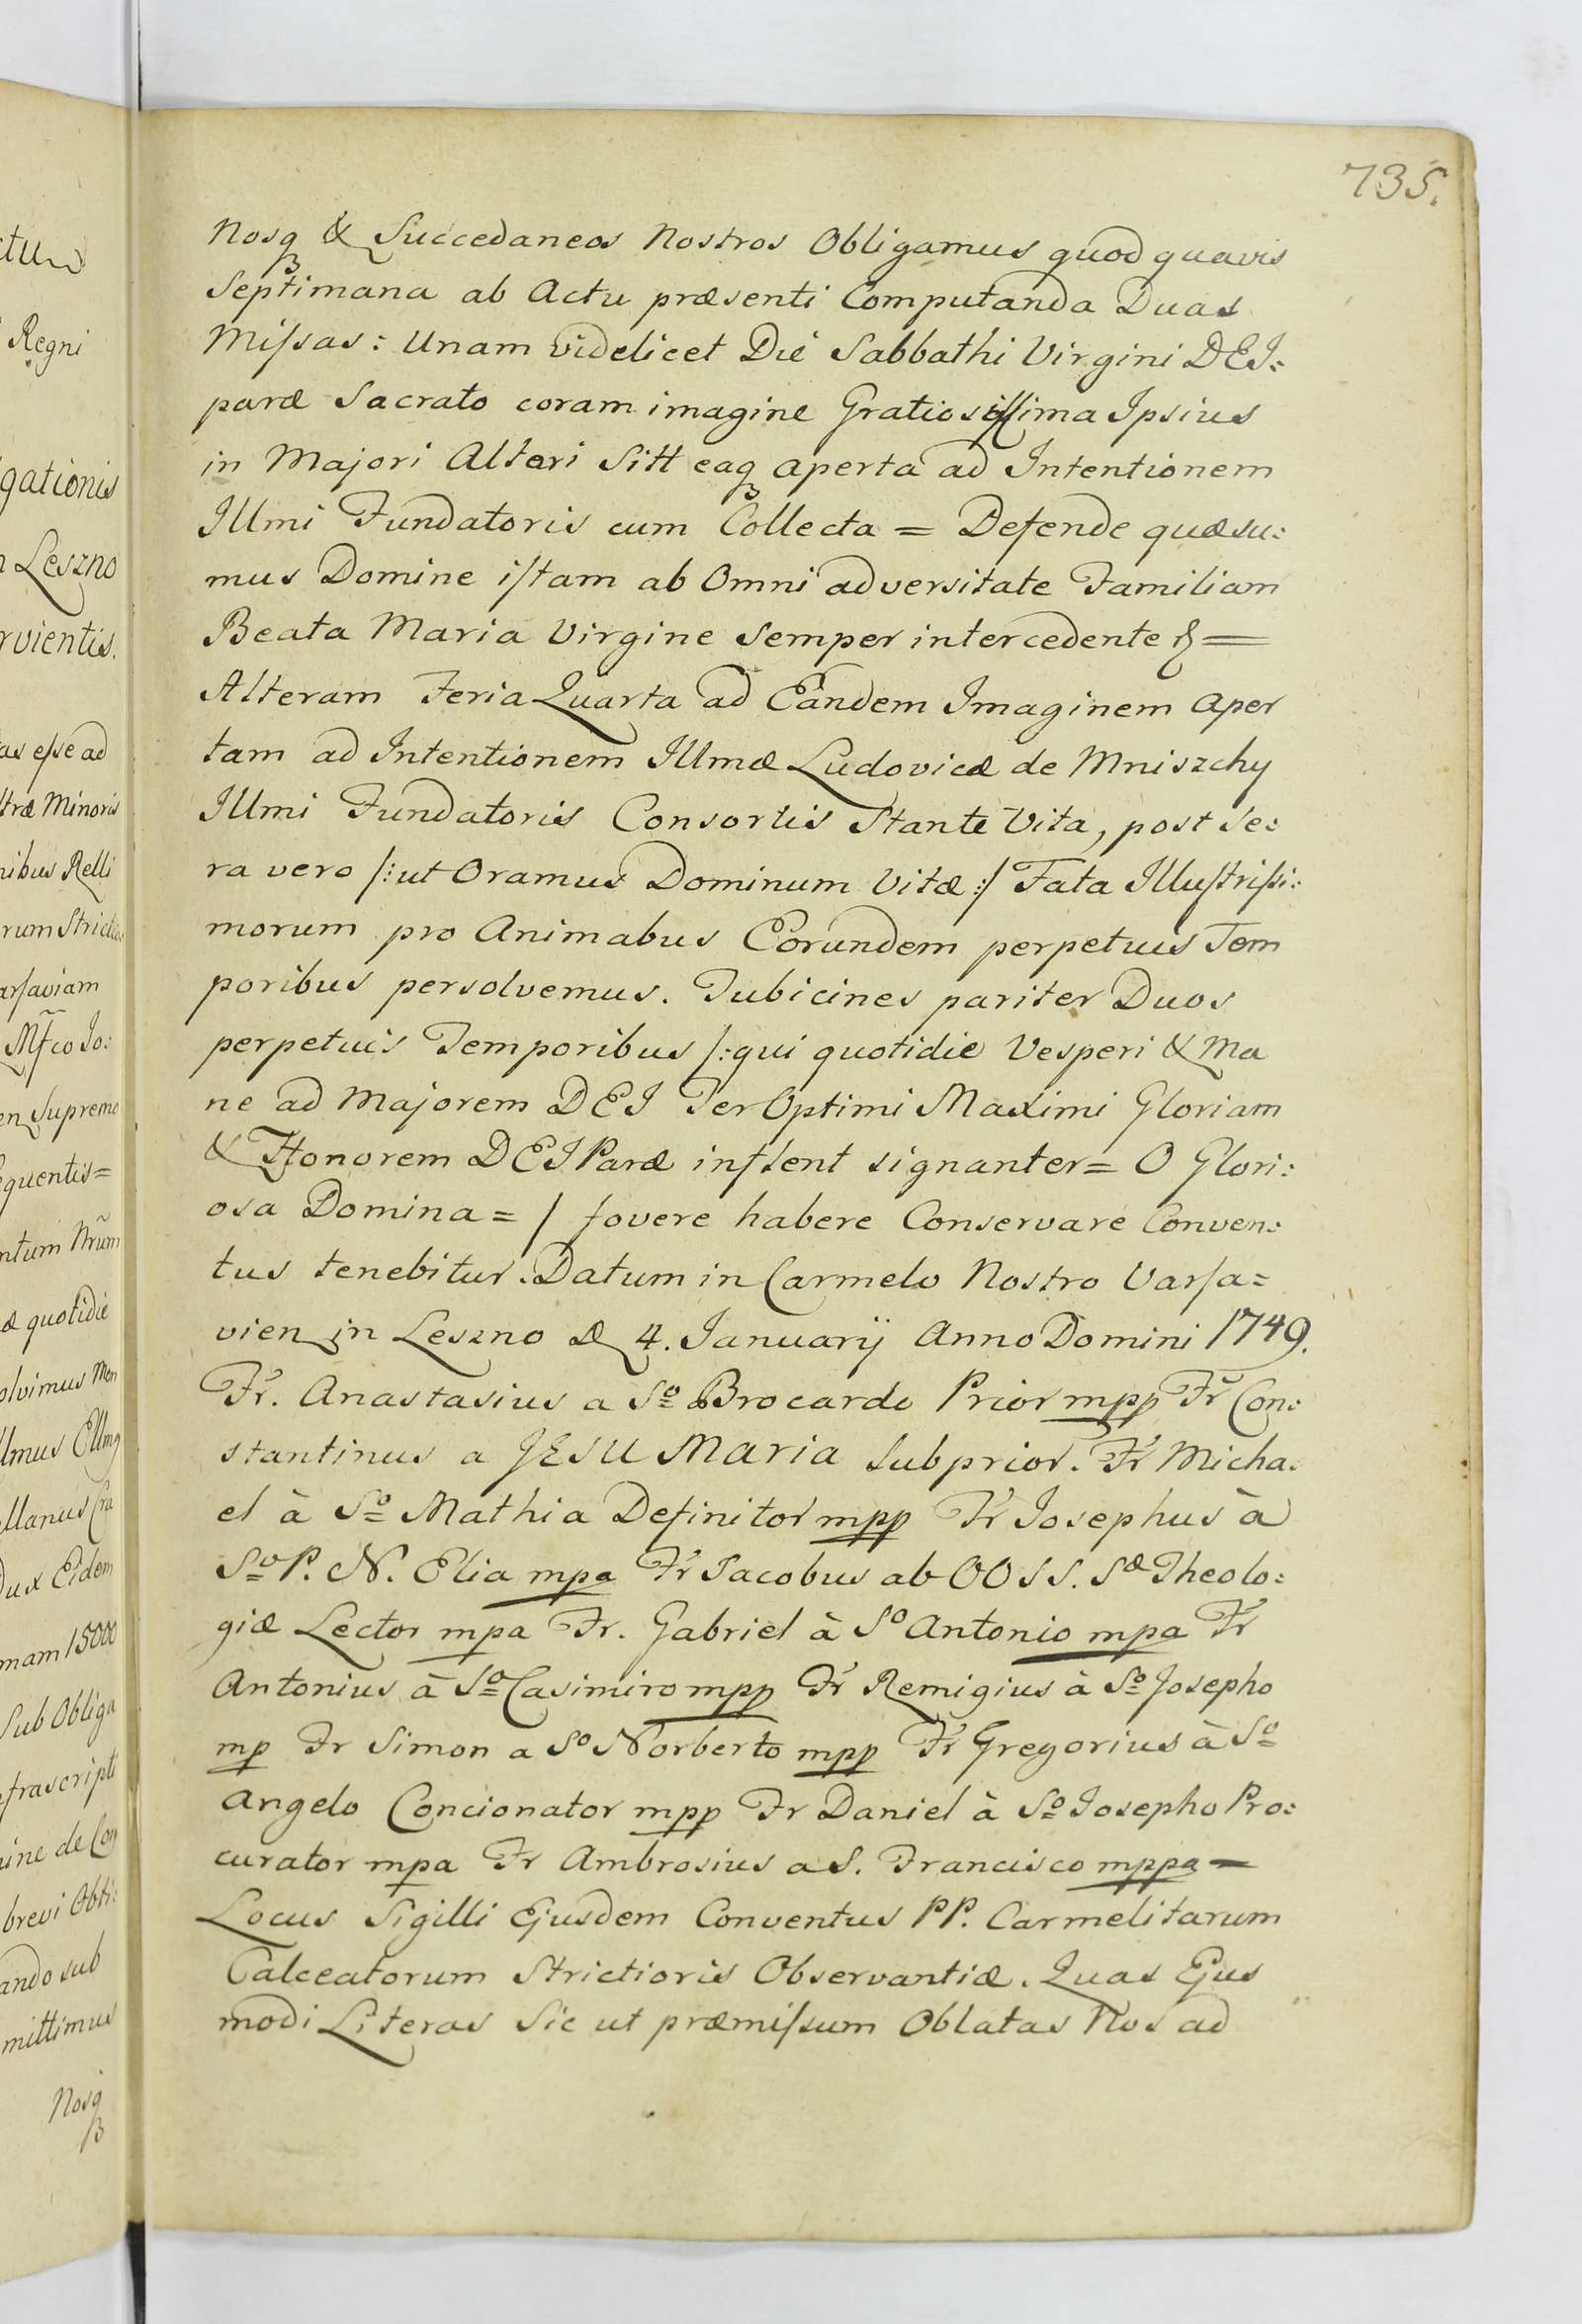 735.
Nosq & Succedaneos Nostros Obligamus quod quavis
Septimana ab Actu præsenti Computanda Duas
Missas: Unam videlicet Die Sabbathi Virgini DEI:
paræ Sacrato coram imagine Gratiosissima Ipsius
in Majori Altari Sitt eaq aperta ad Intentionem
Illmi Fundatoris cum Collecta = Defende quæsu:
mus Domine istam ab Omni adversitate Familiam
Beata Maria Virgine Semper intercedente &=
Alteram Feria Quarta ad Eandem Imaginem aper
tam ad Intentionem Illmæ Ludovicæ de Mniszchy
Illmi Fundatoris Consortis Stante Vita, post Se:
ra vero /:ut Oramus Dominum Vitæ:/ Fata Illustrissi:
morum pro Animabus Eorundem perpetuis Tem
poribus persolvemus. Tubicines pariter Duos
perpetuis Temporibus /:qui quotidie Vesperi & Ma
ne ad Majorem DEI Ter Optimi Maximi Gloriam
& Honorem DEIParæ inflent signanter= O Glori:
osa Domina=/ fovere habere Conservare Conven:
tus tenebitur. Datum in Carmelo Nostro Varsa=
vien in Leszno D 4. Ianuarij Anno Domini 1749.
Fr. Anastasius a So Brocardo Prior mpp Fr Con:
stantinus a JESU MARIA Subprior. Fr Micha:
el à So Mathia Definitor mpp Fr Iosephus à
So P. N. Elia mpa Fr Iacobus ab OOSS. Sæ Theolo:
giæ Lector mpa Fr. Gabriel à So Antonio mpa Fr
Antonius à So Casimiro mpp Fr Remigius à So Josepho
mp Fr Simon a So Norberto mpp Fr Gregorius à So
Angelo Concionator mpp Fr Daniel à So Iosepho Pro:
curator mpa Fr Ambrosius a S. Francisco mppa =
Locus Sigilli Ejusdem Conventus PP. Carmelitarum
Calceatorum Strictioris Observantiæ. Quas Ejus
modi Literas Sic ut præmissum Oblatas Nos ad
Regni
gationis
Leszno
rvientis.
as esse ad
træ Minoris
nibus Relli
rum
arsaviam
Mfco Jo:
en Supremo
equentis=
ntum Nrum
æ quotidie
olvimus Mon
llmus
llanus Cra
Dux Eidem
mam 15000
Sub Obliga
frascripti
ine de Con
brevi Obti:
ando sub
mittimus
Nosq